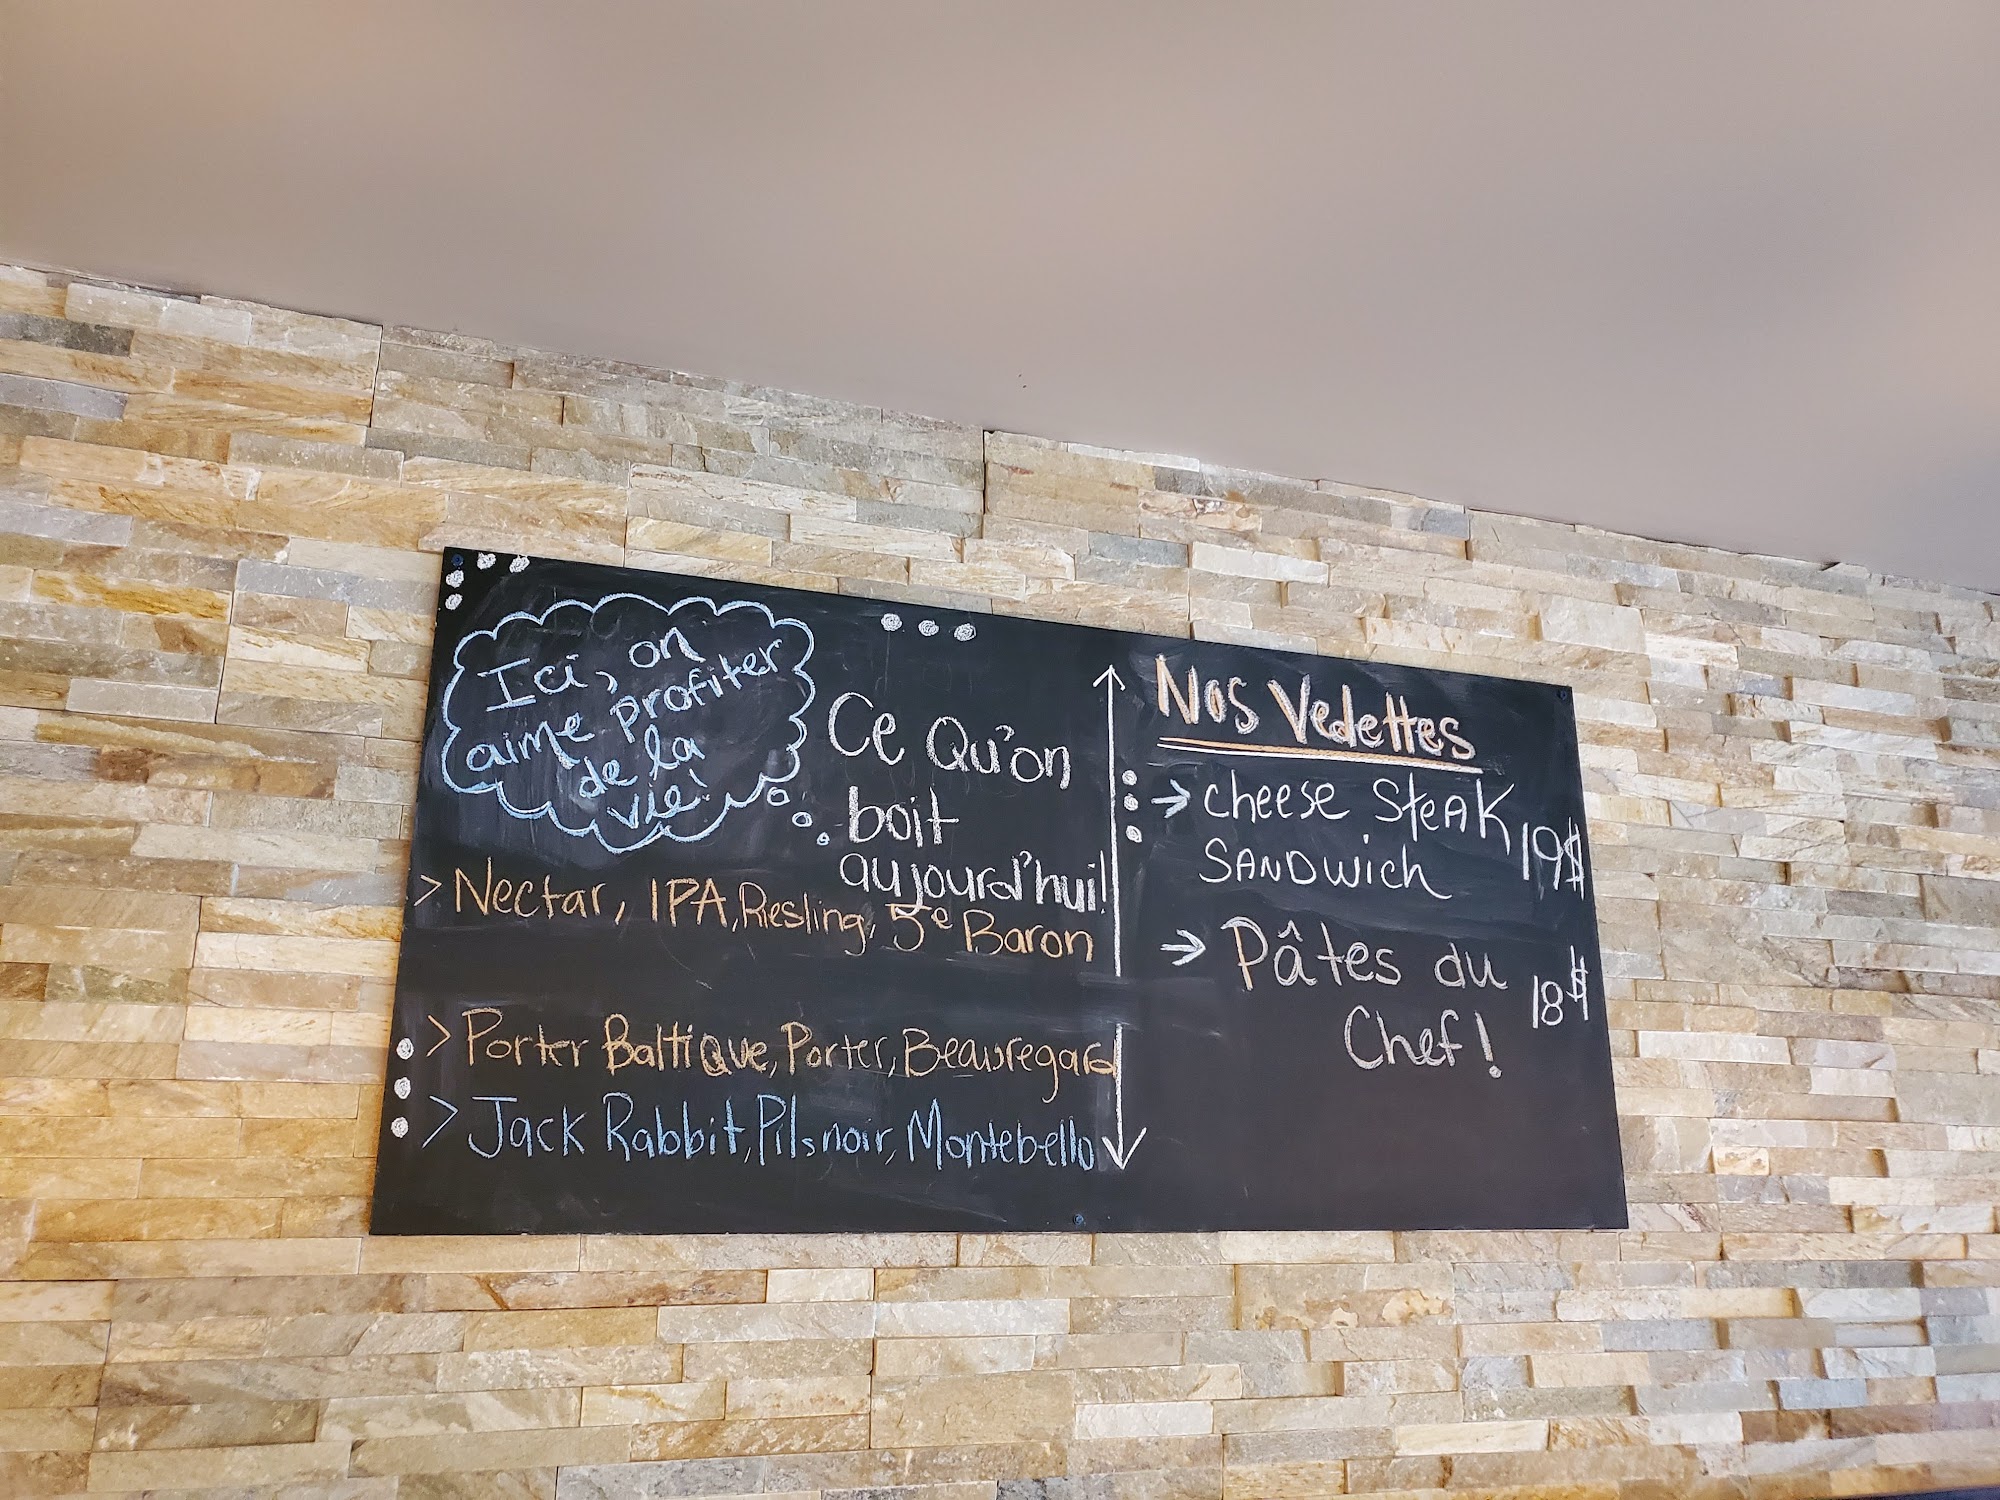 Ici, on
aime profiter
de la
vie!
Ce Qu'on
boit
aujourd'hui!
> Nectar, IPA, Riesling, 5e Baron
> Porter Baltique, Porter, Beauregard
> Jack Rabbit, Pilsnoir, Montebello
Nos Vedettes
→ cheese STEAK
SANDwich 19$
→ Pâtes du
Chef! 18$